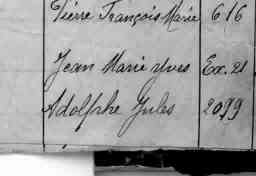 Pierre François Marie 616
Jean Marie Yves Ex. 21
Adolphe Jules 2099